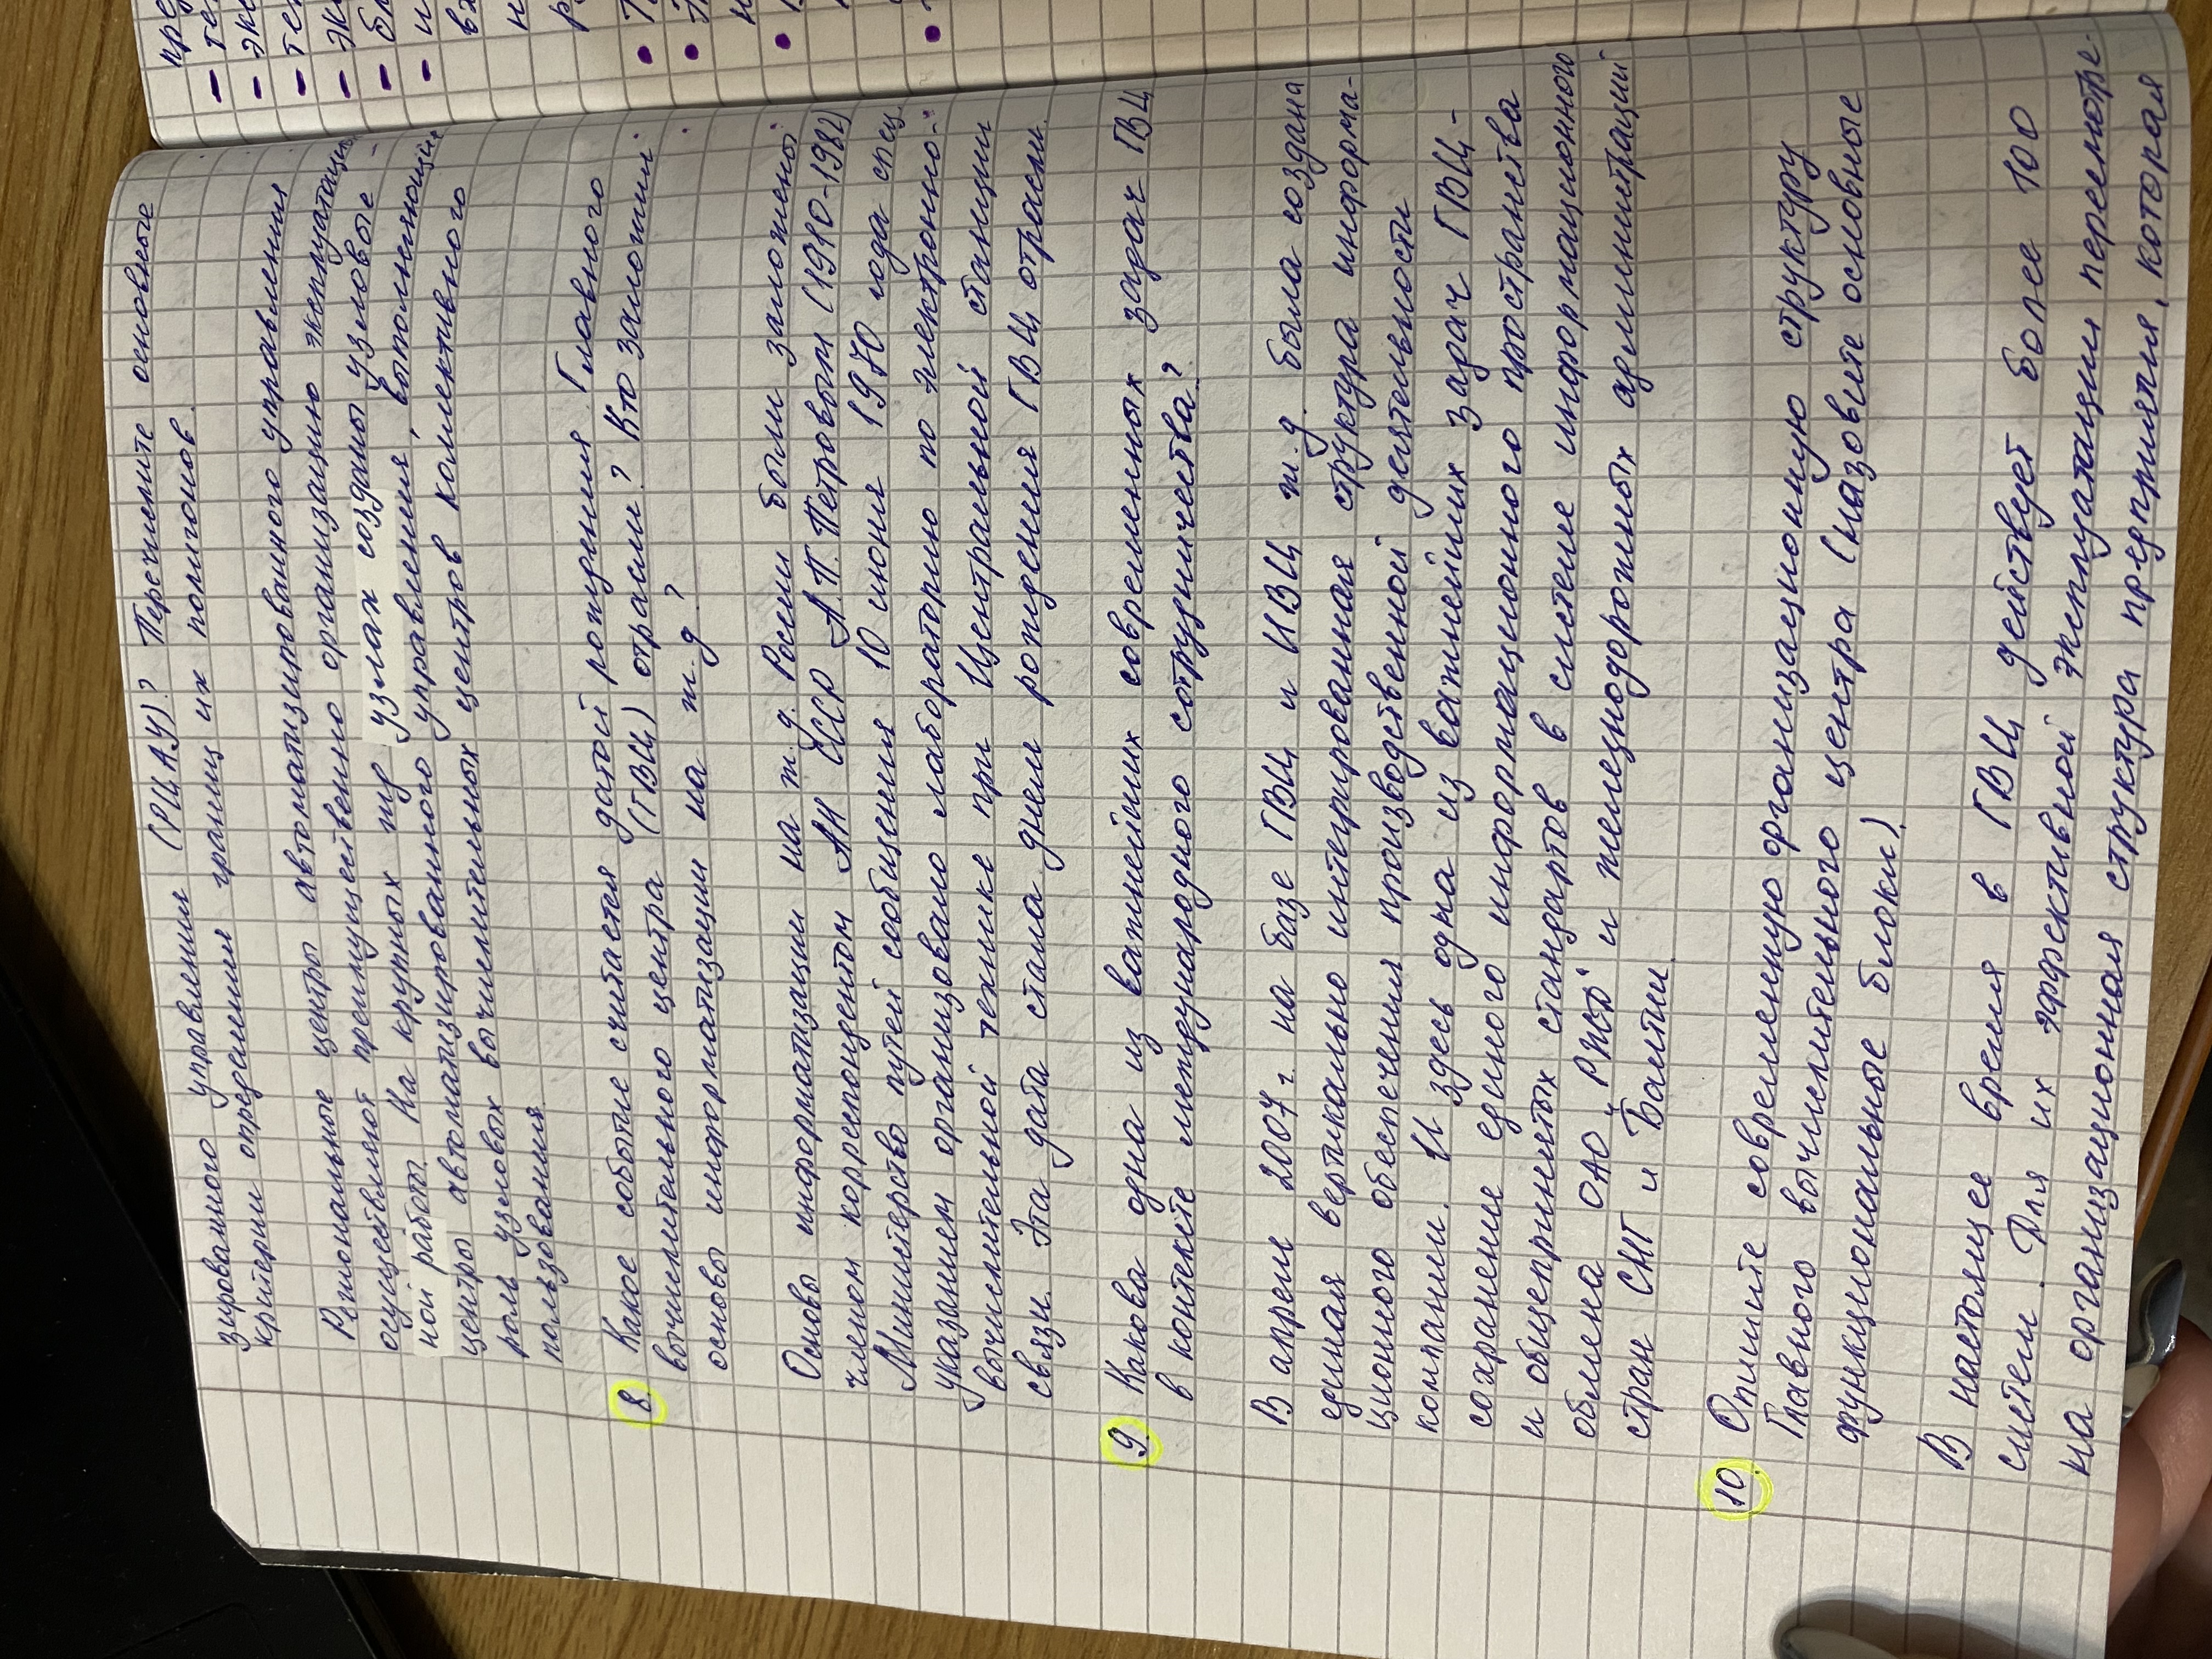 зированного управления (РЦАУ)? Перечислите основные
критерии определения границ их полигонов.
Региональные центры автоматизированного управления
осуществляют преимущественно организацию эксплуатацион-
ной работы. На крупных жд узлах созданы узловые
центры автоматизированного управления, выполняющие
роль узловых вычислительных центров коллективного
пользования.
8. Какое событие считается датой рождения Главного
вычислительного центра (ГВЦ) отрасли? Кто заложил
основы информатизации на ж.д.?
Основы информатизации на ж.д. России были заложены
членом корреспондентом АН СССР А.П. Петровым (1910-1982)
Министерство путей сообщения 10 июня 1970 года спец.
указанием организовало лабораторию по электронно-
вычислительной технике при Центральной станции
связи. Эта дата стала днем рождения ГВЦ отрасли.
9. Какова одна из важнейших современных задач ГВЦ
в контексте международного сотрудничества?
В апреле 2007 г. на базе ГВЦ и ИВЦ ж.д. была создана
единая вертикально интегрированная структура информа-
ционного обеспечения производственной деятельности
компании. И здесь одна из важнейших задач ГВЦ -
сохранение единого информационного пространства
и общепринятых стандартов в системе информационного
обмена ОАО "РЖД" и железнодорожных администраций
стран СНГ и Балтии.
10. Опишите современную организационную структуру
Главного вычислительного центра (назовите основные
функциональные блоки).
В настоящее время в ГВЦ действует более 100
систем. Для их эффективной эксплуатации пересмотре-
на организационная структура предприятия, которая